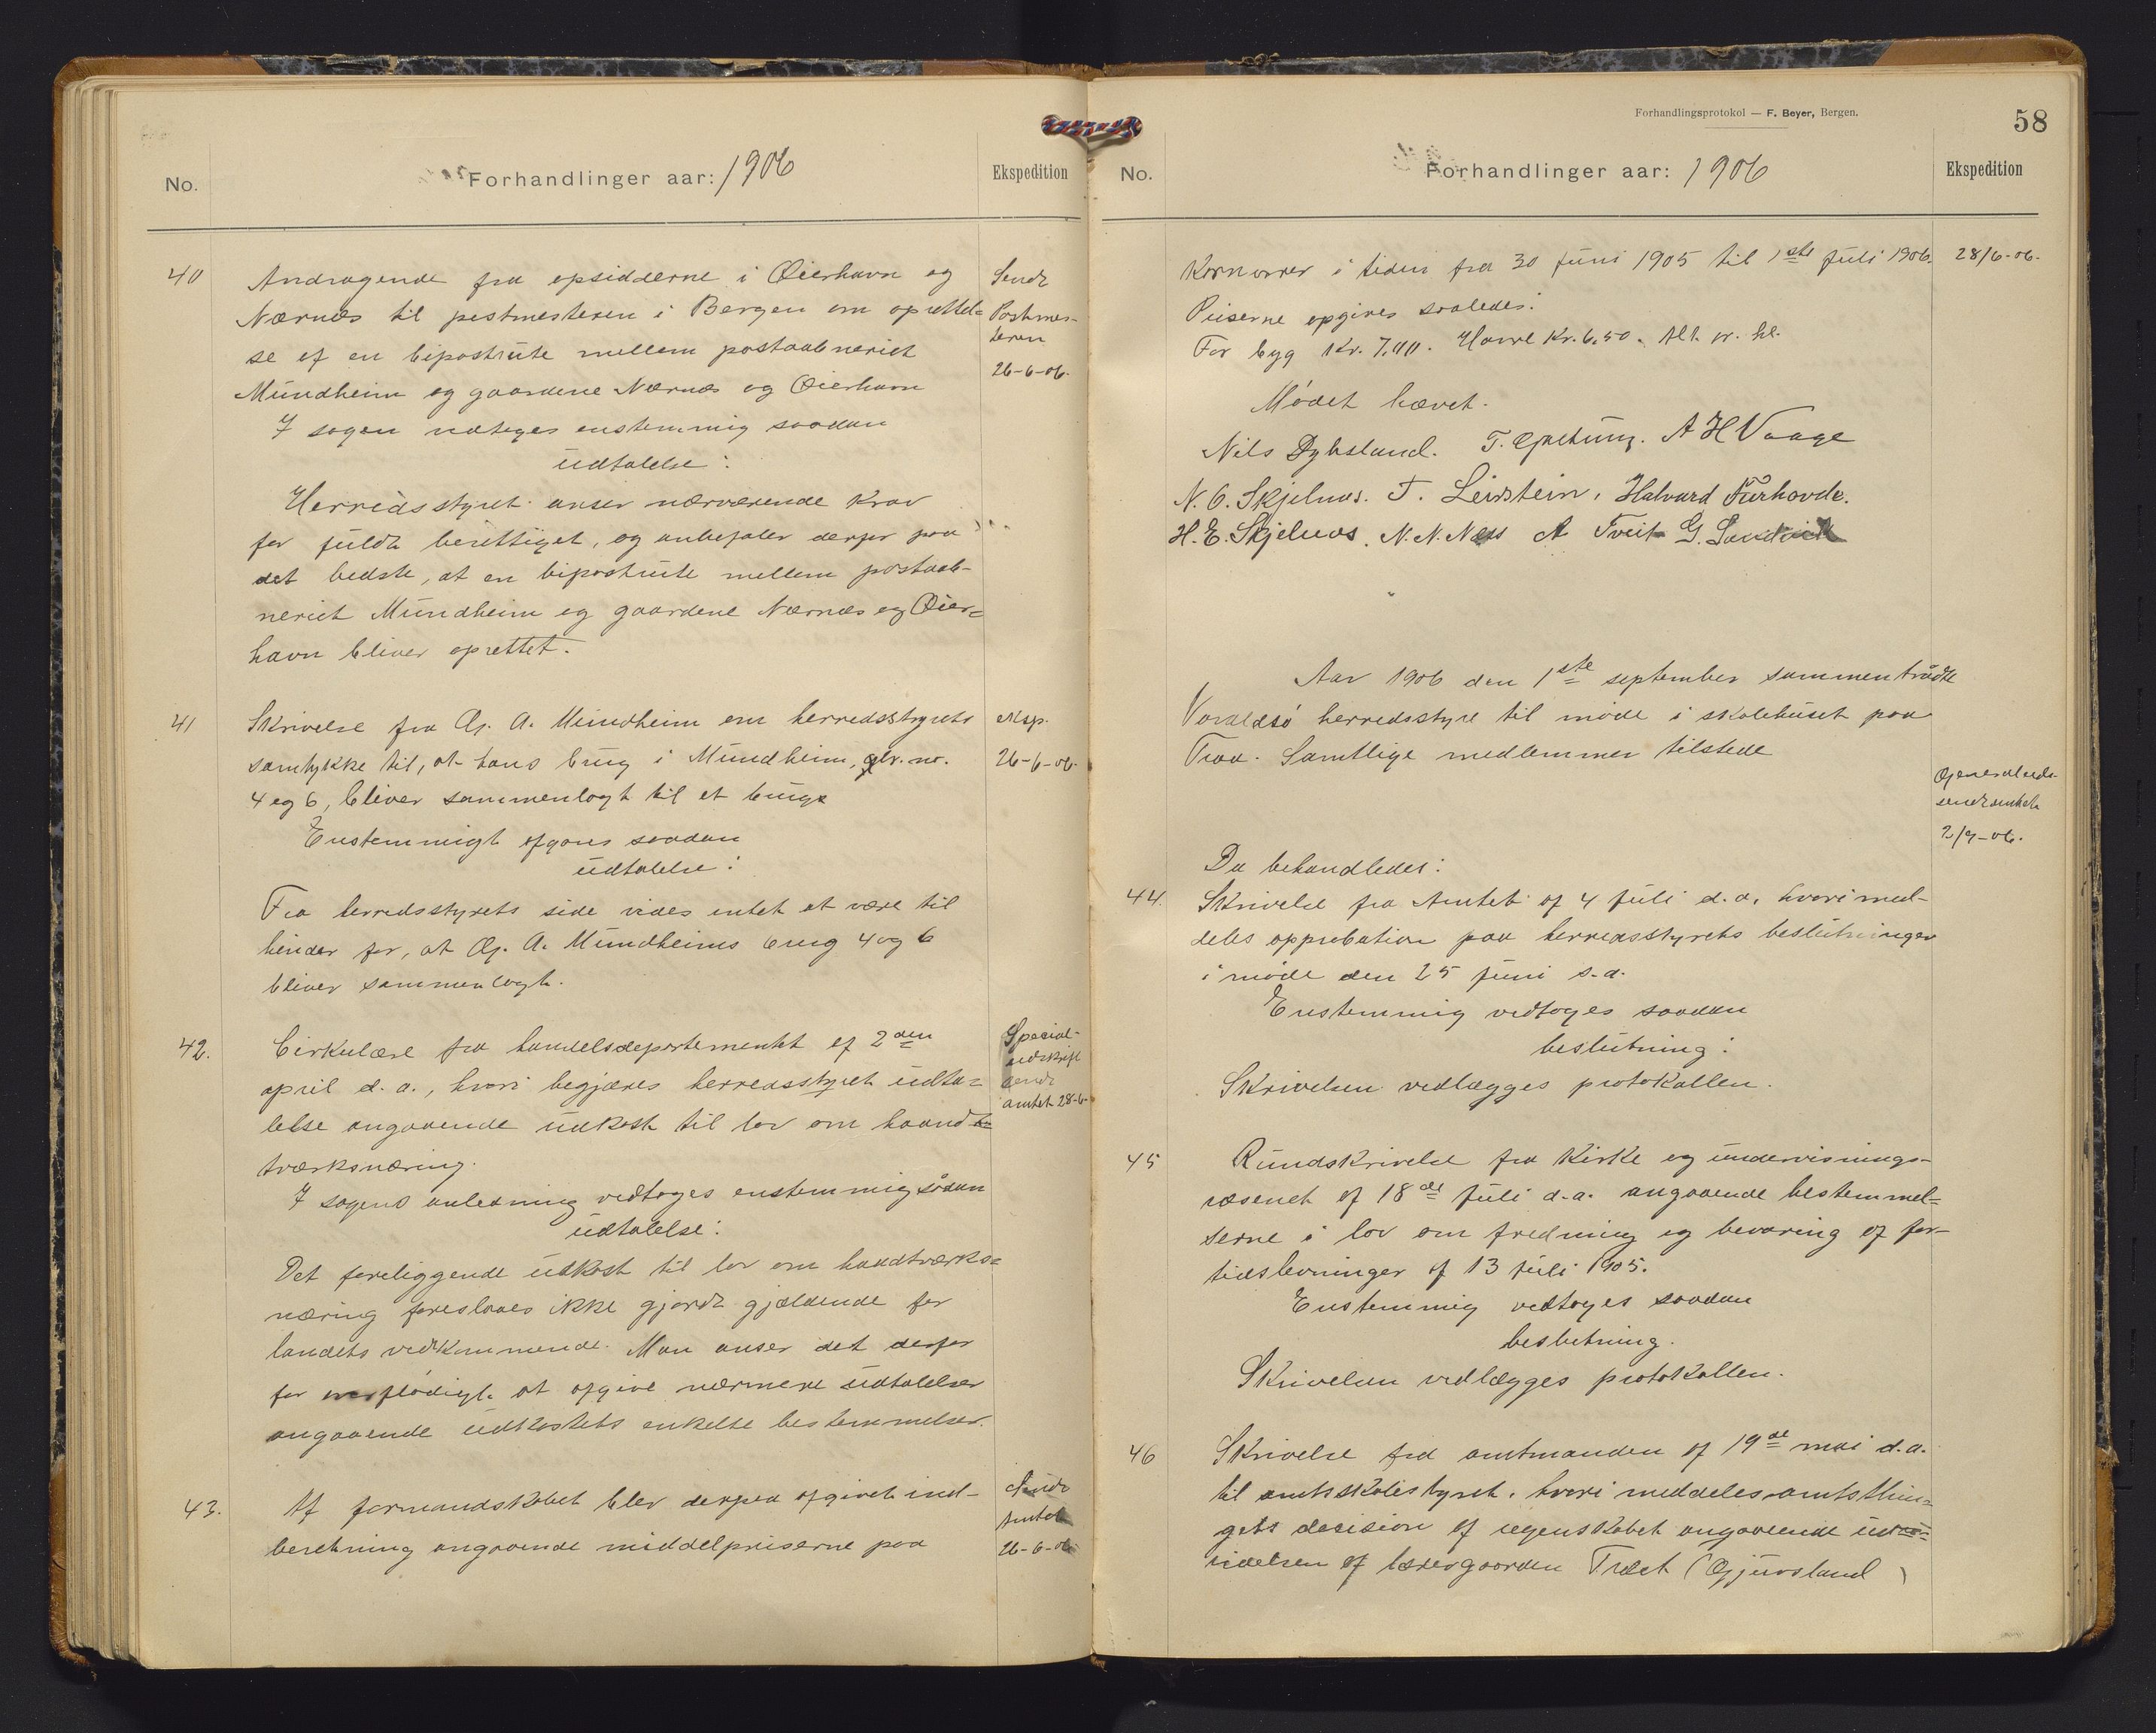 No.
Forhandlinger aar: 1906
Ekspedition
40
Andragende fra opsidderne i Øierhavn og
Nærnæs til postmesteren i Bergen om oprettel=
se af en bipostrute mellem postaabneriet
Mundheim og gaardene Nærnæs og Øierhavn
I sagen vedtoges enstemmig saadan
udtalelse:
Herredsstyret anser nærværende krav
for fuldt berettiget, og anbefaler derfor paa
det bedste, at en bipostrute mellem postaab-
neriet Mundheim og gaardene Nærnæs og Øier=
havn bliver oprettet.
Sendt
Postmes-
teren
26-6-06.
41
Skrivelse fra G. A. Mundheim om herredsstyrets
samtykke til, at hans brug i Mundheim, br. no.
4 og 6, bliver sammenlagt til et brug.
Enstemmigt afgaves saadan
udtalelse:
Fra herredsstyrets side vides intet at være til
hinder for, at G. A. Mundheims brug 4 og 6
bliver sammenlagt.
eksp.
26-6-06.
42.
Cirkulære fra handelsdepartementet af 2den
april d. a., hvori begjæres herredsstyret udta=
lelse angaaende udkast til lov om haand=
tværksnæring.
I sagens anledning vedtoges enstemmig sådan
udtalelse:
Det foreliggende udkast til lov om haandtværks=
næring foreslaaes ikke gjordt gjældende for
landets vedkommende. Man anser det derfor
for overflødigt at afgive nærmere udtalelser
angaaende udkastets enkelte bestemmelser.
Special-
udskrift
sendt
amtet 28-6-
43.
Af formandskabet blev derpaa afgivet ind-
beretning angaaende middelpriserne paa
Sendt
Amtet
26-6-06
Forhandlingsprotokol — F. Beyer, Bergen.
58
No.
Forhandlinger aar: 1906
Ekspedition
Kornvarer i tiden fra 30 juni 1905 til 1ste juli 1906.
28/6-06.
Priserne opgives saaledes:
For byg Kr. 7,00. Havre Kr. 6,50. Alt pr. hl.
Mødet hævet.
Nils Dybsland. T. Gjetung. A H Vaage
N. O. Skjelnes. T. Leirstein, Halvard Furhovde.
H. E. Skjelnes. N. N. Næss A Tveit G. Sandvik
Aar 1906 den 1ste september sammentrådte
Varaldsø herredsstyre til møde i skolehuset paa
Traa. Samtlige medlemmer tilstede
sendt amtet
2/9-06.
Da behandledes:
44.
Skrivelse fra Amtet af 4 juli d.a. hvori med-
deles approbation paa herredsstyrets beslutninger
i møde den 25 juni s.a.
Enstemmig vedtoges saadan
beslutning:
Skrivelsen vedlægges protokollen.
45
Rundskrivelse fra Kirke og undervisnings-
væsenet af 18de juli d.a. angaaende bestemmel=
serne i lov om fredning og bevaring af for-
tidslevninger af 13 juli 1905.
Enstemmig vedtoges saadan
beslutning.
Skrivelsen vedlægges protokollen.
46
Skrivelse fra amtmanden af 19de mai d.a.
til amtsskolestyret, hvori meddeles amtsthin=
gets decision af regnskabet angaaende
af lærergaarden Trået (Gjuvsland)